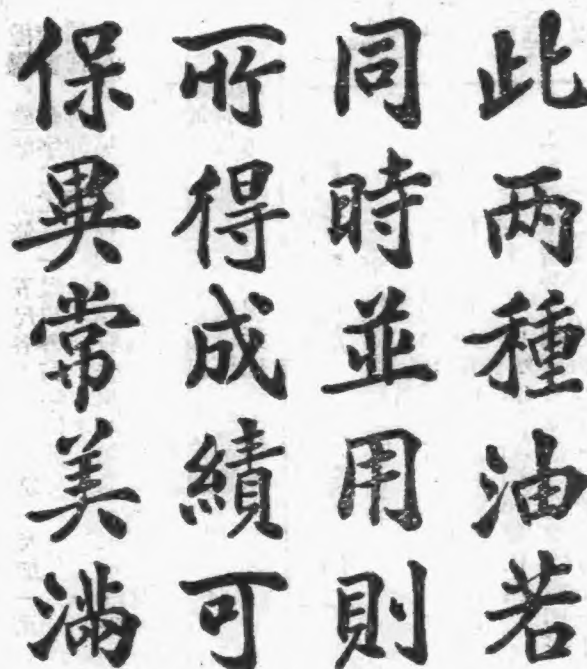 此两種油若
同時並用則
所得成績可
保異常美滿